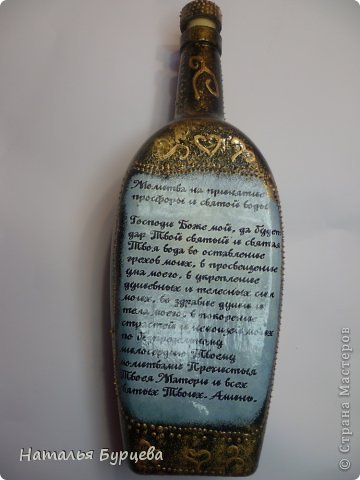 Молитва на принятие
просфоры и святой воды
Господи Боже мой, да будет
дар Твой святый и святая
Твоя вода во оставление
грехов моих, в просвещение
ума моего, в укрепление
душевных и телесных сил
моих, во здравие души и
тела моего, в покорение
страстей и немощей моих
по безпредельному
милосердию Твоему
молитвами Пречистыя
Твоея Матери и всех
святых Твоих. Аминь.
Наталья Бурцева
© Страна Мастеров